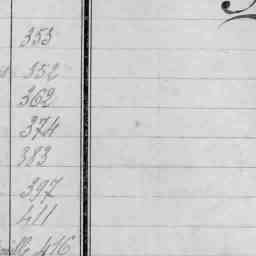 353
352
362
374
383
397
411
416